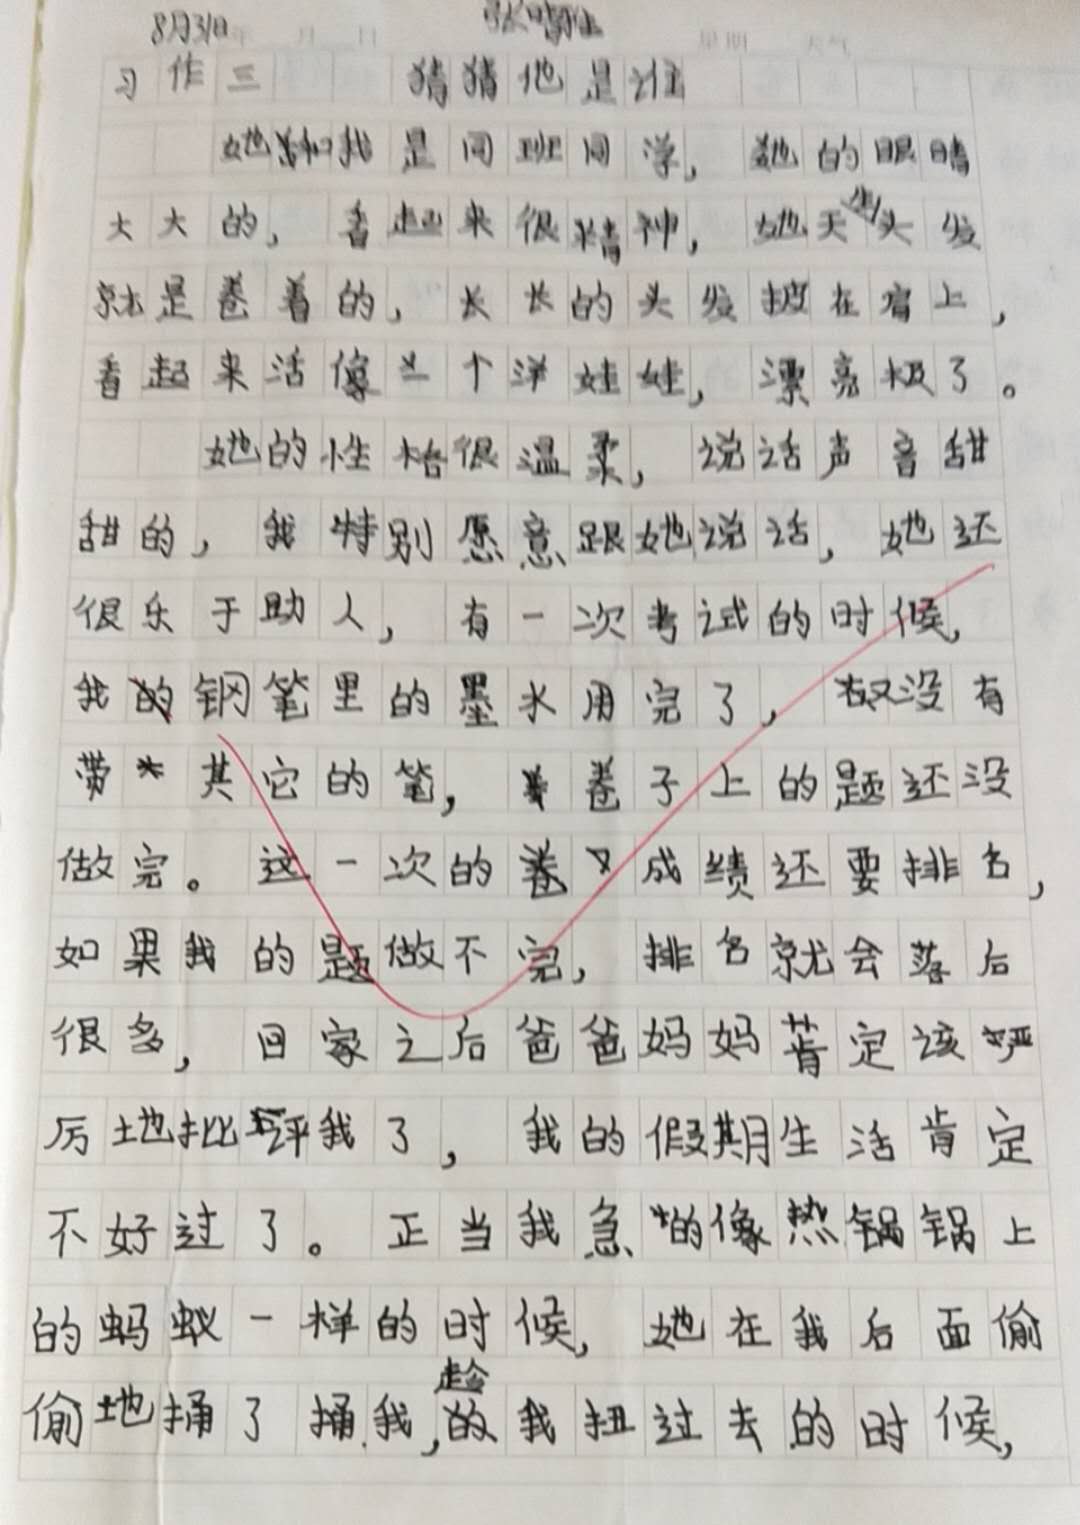 8月31日
习作三 猜猜他是谁
她和我是同班同学，她的眼睛
大大的，看起来很精神，她天生头发
就是卷着的，长长的头发披在肩上，
看起来活像一个洋娃娃，漂亮极了。
她的性格很温柔，说话声音甜
甜的，我特别愿意跟她说话，她还
很乐于助人，有一次考试的时候，
我的钢笔里的墨水用完了，却没有
带其它的笔，卷子上的题还没
做完。这一次的成绩还要排名，
如果我的题做不完，排名就会落后
很多，回家之后爸爸妈妈肯定该严
厉地批评我了，我的假期生活肯定
不好过了。正当我急的像热锅锅上
的蚂蚁一样的时候，她在我后面偷
偷地捅了捅我，趁我扭过去的时候，